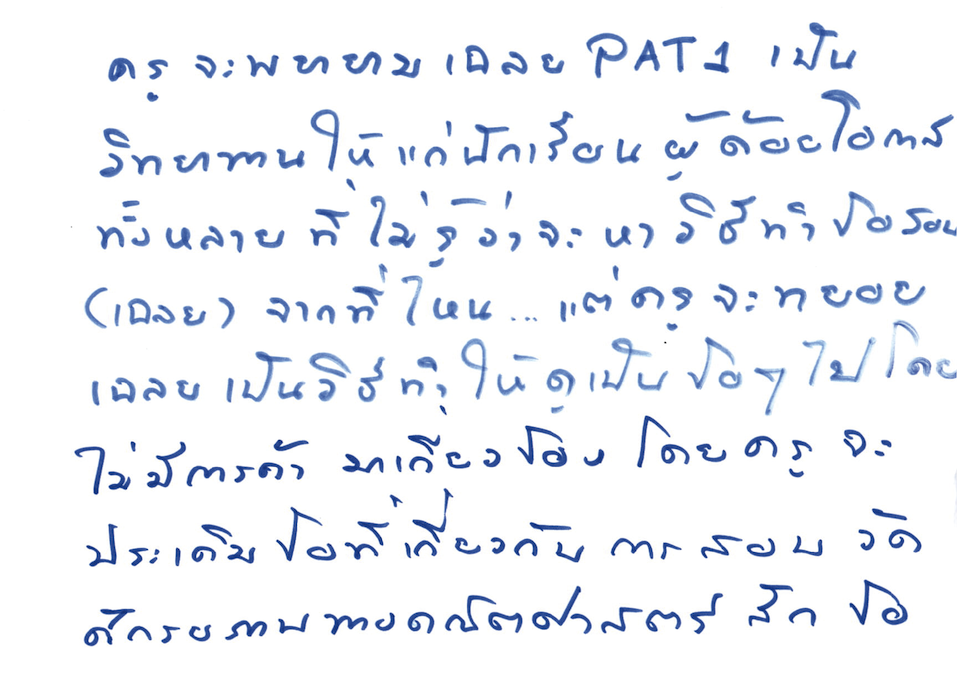 ครูจะพยายามเฉลย PAT1 เป็น
วิทยาทานให้แก่นักเรียนผู้ด้อยโอกาส
ทั้งหลายที่ไม่รู้ว่าจะหาวิธีทำข้อสอบ
(เฉลย) จากที่ไหน... แต่ครูจะทยอย
เฉลยเป็นวิธีทำให้ดูเป็นข้อๆ ไปโดย
ไม่มีการค้ามาเกี่ยวข้อง โดยครูจะ
ประเดิมข้อที่เกี่ยวกับการสอบวัด
ศักยภาพทางคณิตศาสตร์สักข้อ